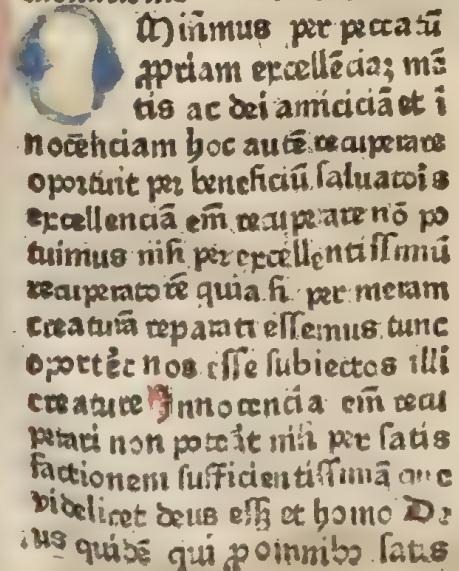 Omiñmus per peccatū
ꝓpriam excellēciaꝫ mē
tis ac dei amiciciā et ī
nocēnciam hoc autē recuperare
oportūit per beneficiū ſaluatoris
excellenciā em̄ recuperare nō po
tuimus niſi per excellentiſſimū
recuperatorē quia ſi per meram
creaturā reparati eſſemus tunc
oporteret nos eſſe ſubiectos illi
creature Innocencia em̄ recu
perari non poterāt niſi per ſatis
factionem ſufficientiſſimā que
videlicet deus eſſꝫ et homo De
ius quidē qui ꝓ omnibꝫ ſatis